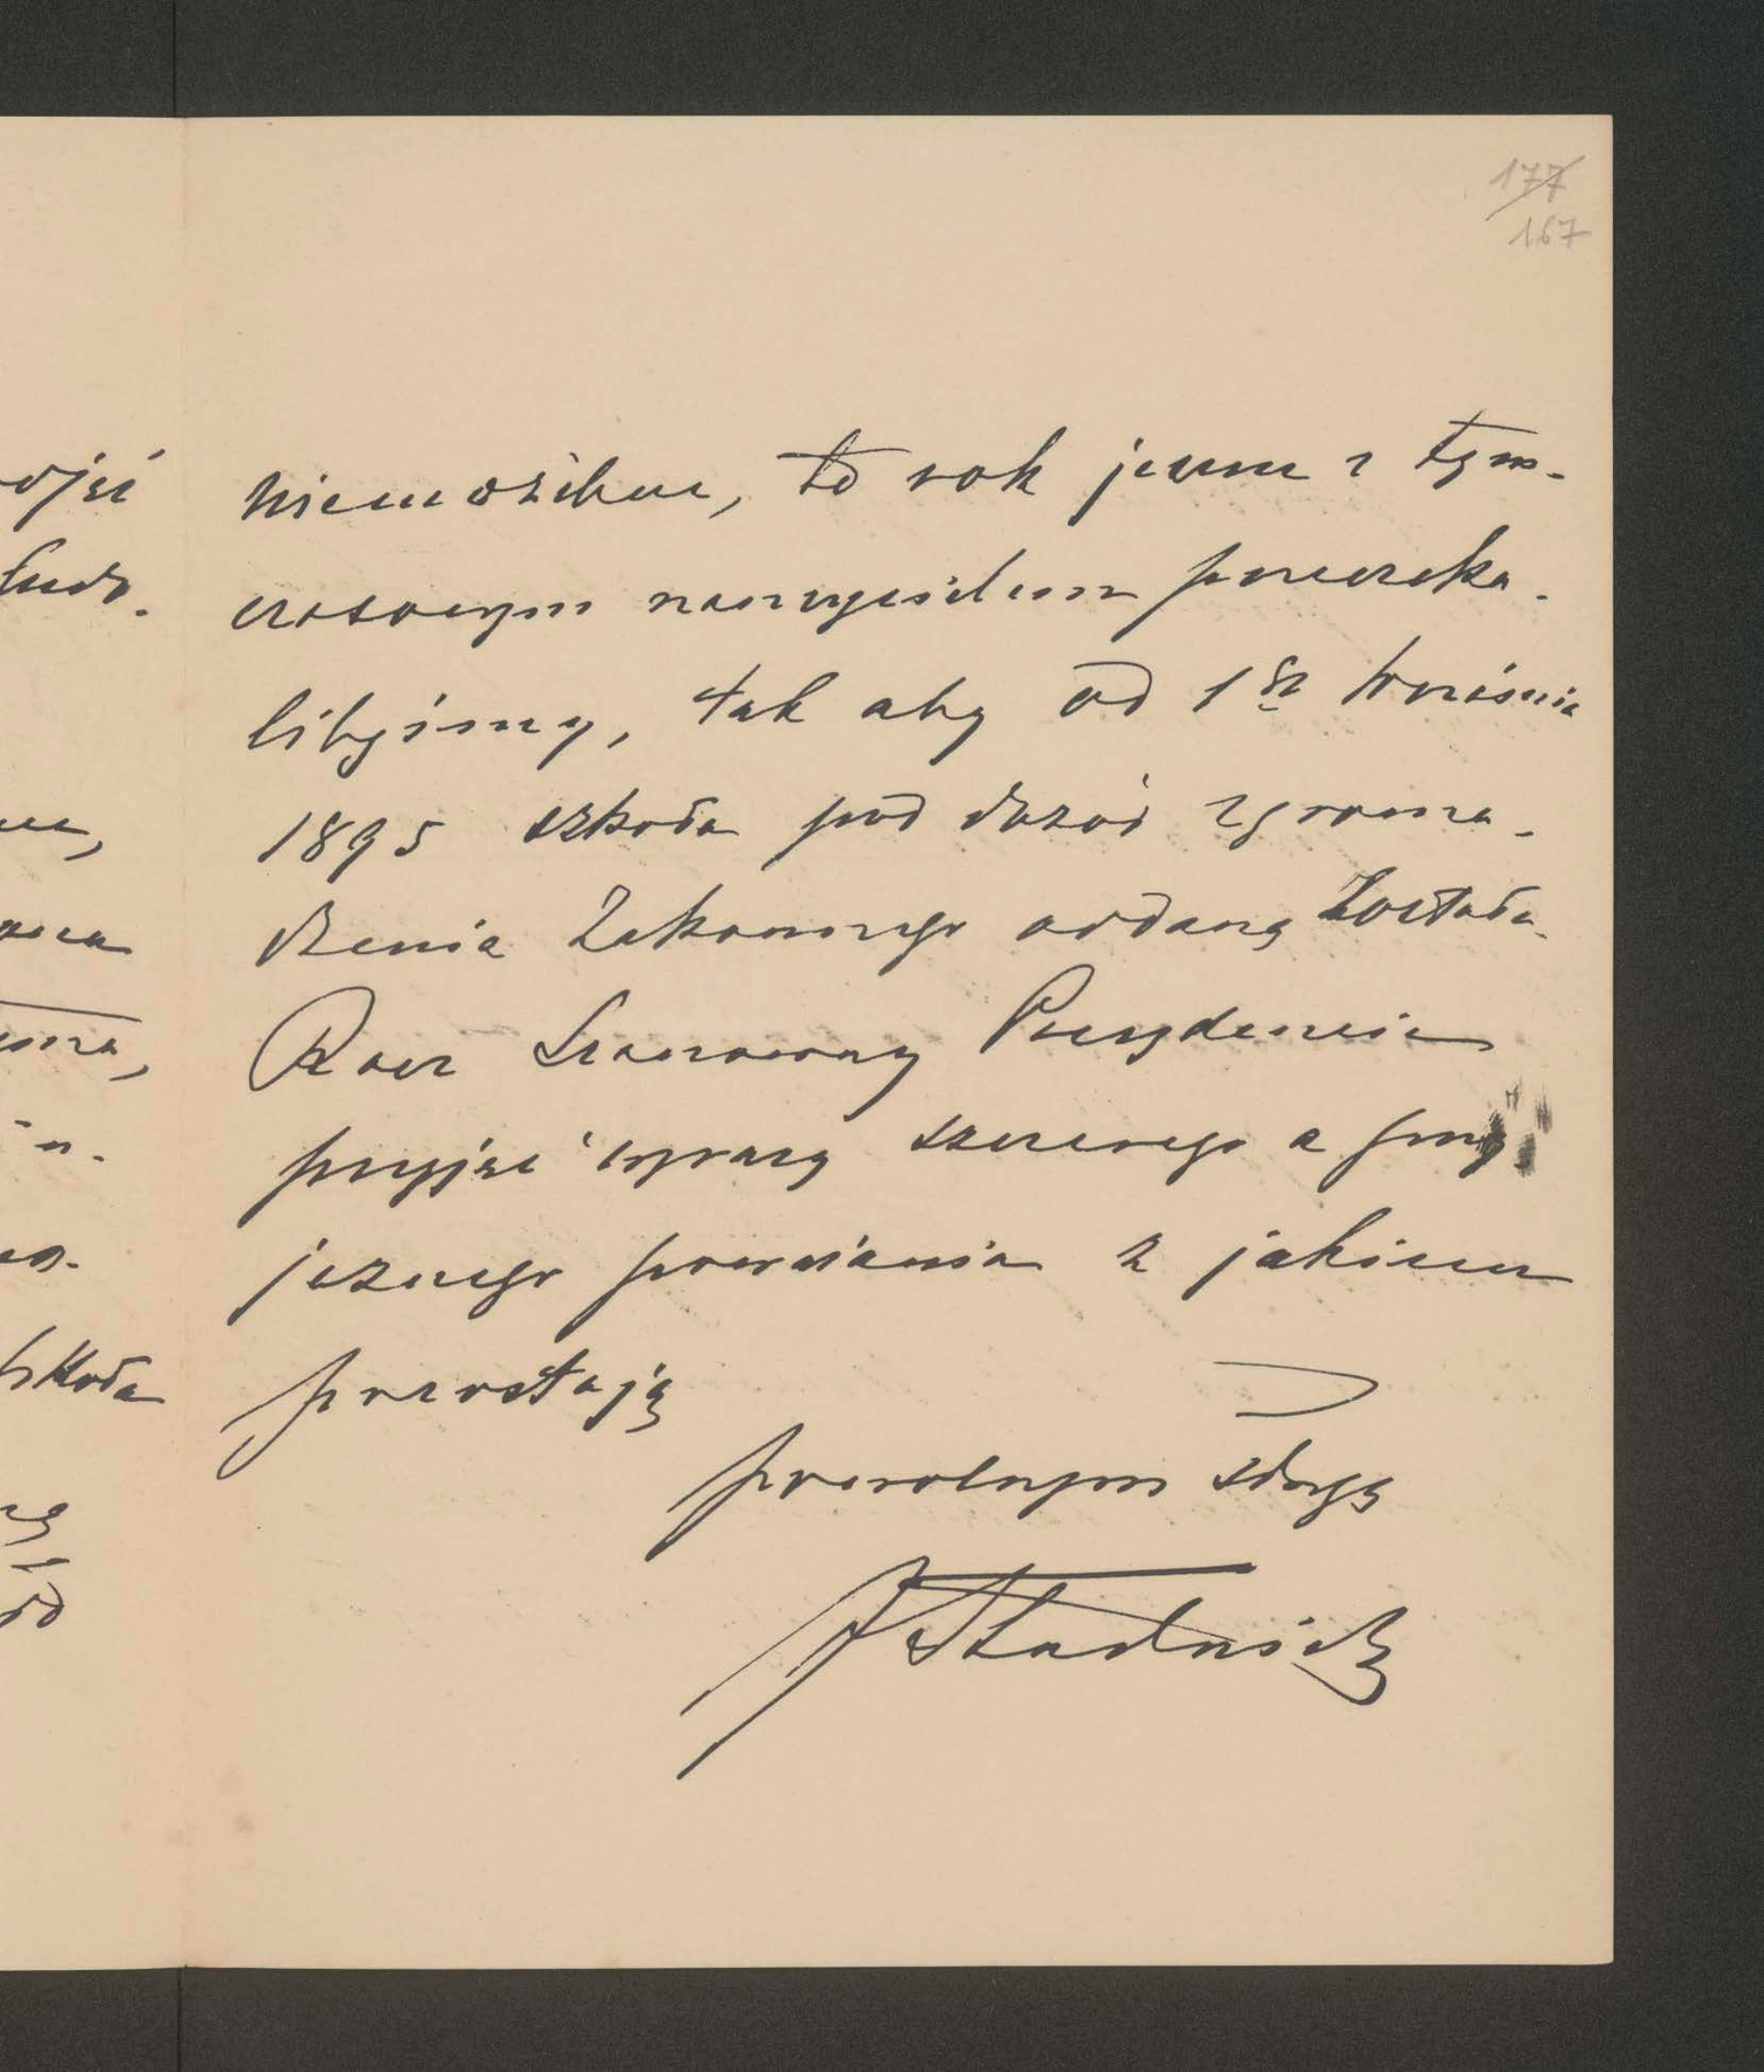 177
167
niemożebne, to rok jeszcze z tym-
czasowym nauczycielem poczeka-
libyśmy, tak aby od 1go Września
1895 szkoła pod dozór zgroma-
dzenia Zakonnego oddaną została.
Racz Szanowny Prezydencie
przyjąć wyrazy szczerego a
poważania z jakiem
pozostaję
powolnym sługą
Stadnicki
ojść
szkoła